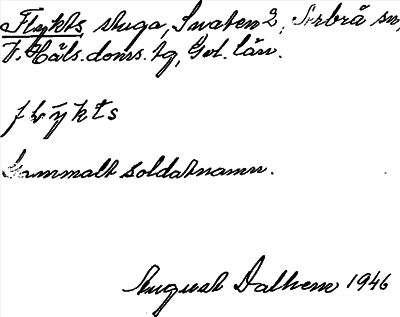 Flykts stuga, Svaben 2, Arbrå sn,
V. Häls. doms. tg, Gvl. län.
flȳkts
Gammalt soldatnamn.
August Dalhem 1946